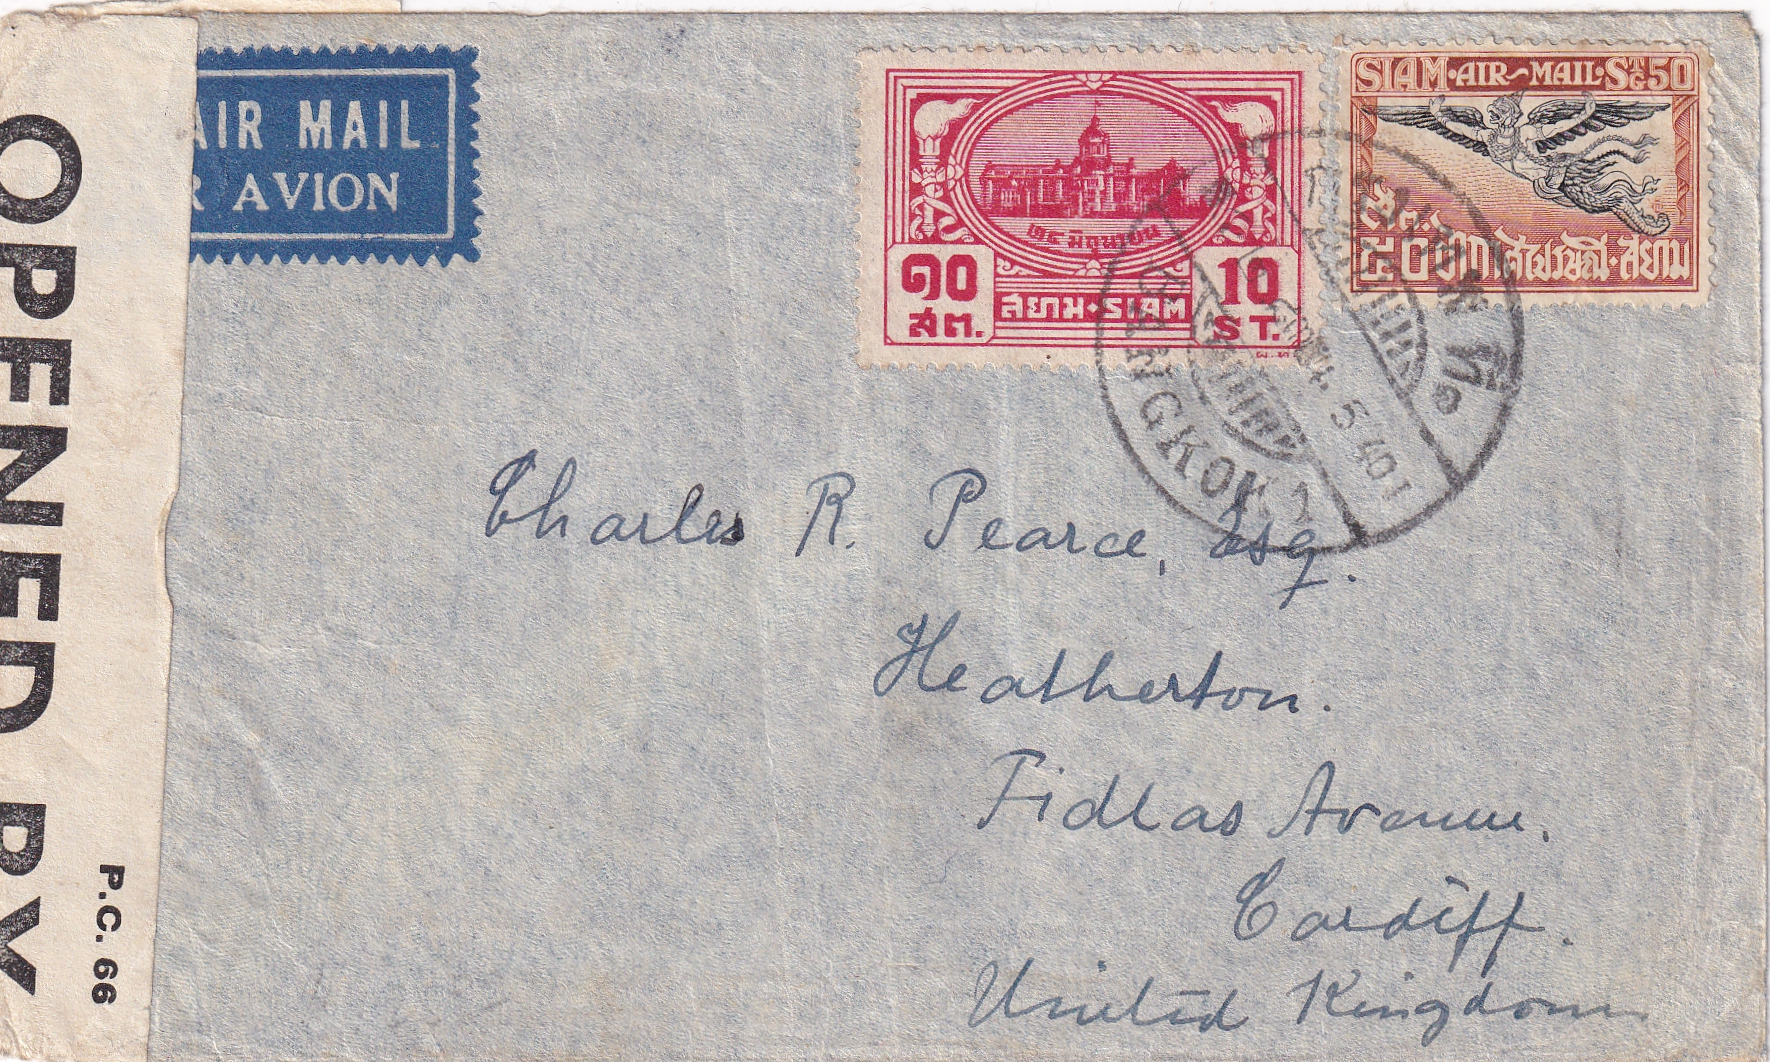 OPENED BY
P.C. 66
AIR MAIL
R AVION
๒๔ มิถุนายน
๑๐
สต.
สยาม·SIAM
10
ST.
SIAM·AIR-MAIL·STG50
๕๐
สยาม
BANGKOK 1
5 40
Charles R. Pearce, Esq.
Heatherton.
Fidlas Avenue.
Cardiff.
United Kingdom